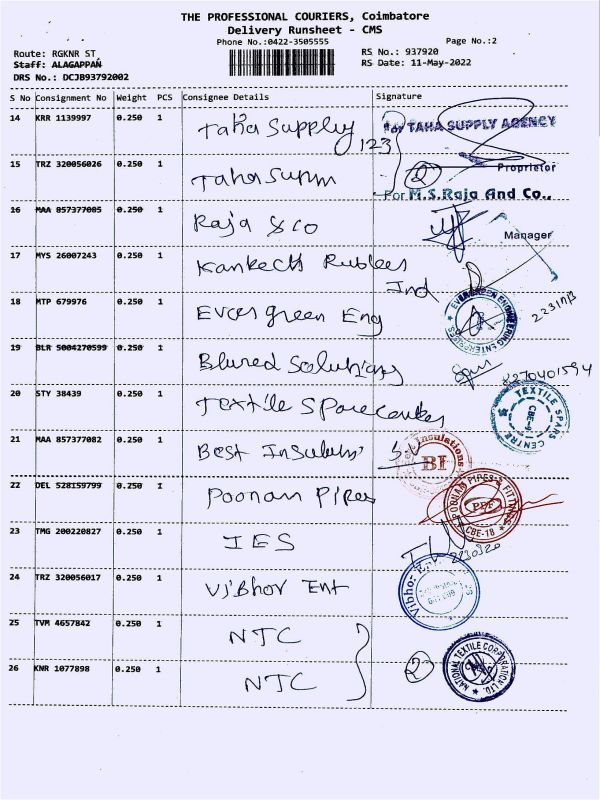 THE PROFESSIONAL COURIERS, Coimbatore
Delivery Runsheet - CMS
Phone No.:0422-3505555
Page No.:2
Route: RGKNR ST
RS No.: 937920
Staff: ALAGAPPAN
RS Date: 11-May-2022
DRS No.: DCJB93792002
S No Consignment No Weight PCS Consignee Details Signature
14 KRR 1139997 0.250 1 Taha Supply 123 for TAHA SUPPLY AGENCY
Proprietor
15 TRZ 320056026 0.250 1 Taha 2
For M.S.Raja And Co.,
16 MAA 857377005 0.250 1 Raja & co
Manager
17 MYS 26007243 0.250 1 Kankech Rublees Ind
18 MTP 679976 0.250 1 Evergreen Eng EVERGREEN ENGINEERING ENTERPRISES
19 BLR 5004270599 0.250 1 Blured Solutions 8270401594
20 STY 38439 0.250 1 Textile Sparecentes TEXTILE SPARS CENTRE CBE-9
21 MAA 857377082 0.250 1 Best Insulutn Insulations BI
22 DEL 528159799 0.250 1 Poonam Pipes POONAM PIPES & FITTINGS PPF CBE-18
23 TMG 200220827 0.250 1 IES
24 TRZ 320056017 0.250 1 Vibhor Ent Vibhor
25 TVM 4657842 0.250 1 NTC
26 KNR 1077898 0.250 1 NTC 2 NATIONAL TEXTILE CORPORATION LTD.